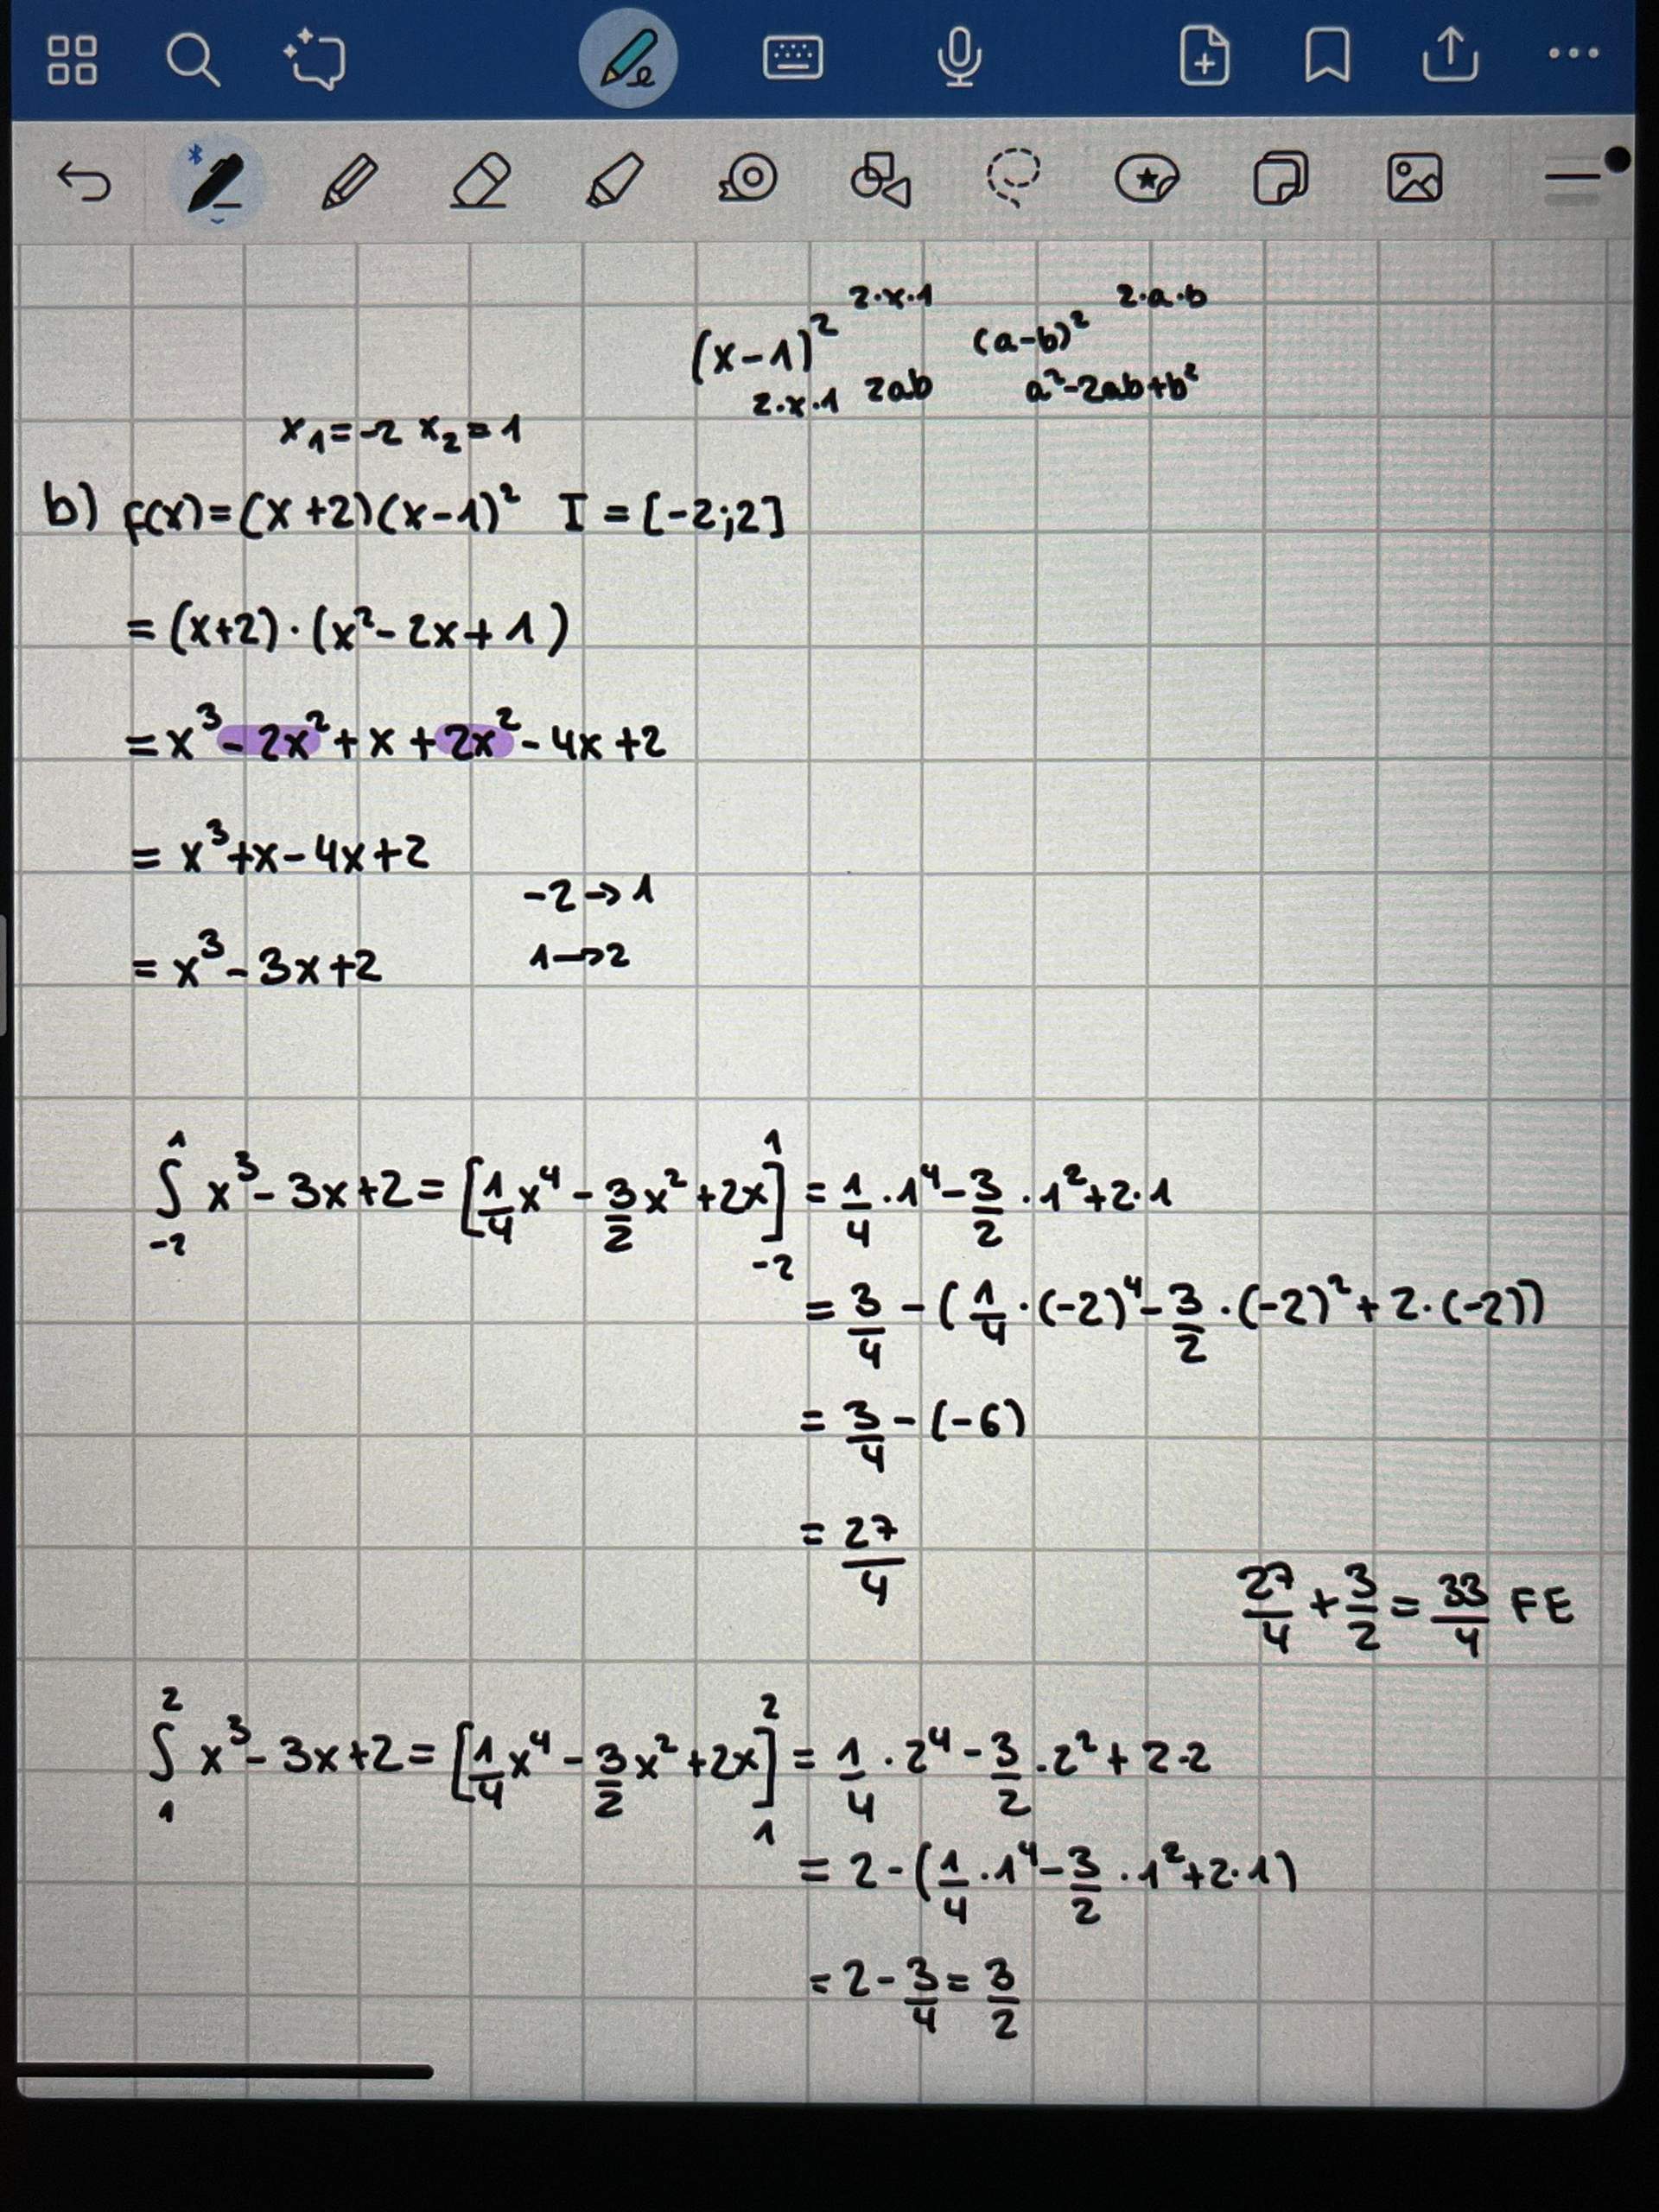 2·x·1 2·a·b
(x-1)² (a-b)²
2·x·1 2ab a²-2ab+b²
x₁=-2 x₂=1
b) f(x)=(x+2)(x-1)² I=[-2;2]
=(x+2)·(x²-2x+1)
=x³-2x²+x+2x²-4x+2
=x³+x-4x+2
-2→1
=x³-3x+2 1→2
∫₋₂¹ x³-3x+2=[1/4x⁴-3/2x²+2x]₋₂¹=1/4·1⁴-3/2·1²+2·1
=3/4-(1/4·(-2)⁴-3/2·(-2)²+2·(-2))
=3/4-(-6)
=27/4
27/4+3/2=33/4 FE
∫₁² x³-3x+2=[1/4x⁴-3/2x²+2x]₁²=1/4·2⁴-3/2·2²+2·2
=2-(1/4·1⁴-3/2·1²+2·1)
=2-3/4=3/2